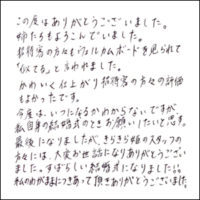 この度はありがとうございました。
姉たちもよろこんでいました。
招待客の方々もウェルカムボードを見られて
「似てる」と言われました。
かわいく仕上がり招待客の方々の評価
もよかったです。
今度は、いつになるかわからないですが、
私自身の結婚式のときお願いしたいと思います。
最後になりましたが、きらきら姫のスタッフの
方々には、大変お世話になりありがとうござい
ました。すばらしい結婚式になりました。
私のわがままにつきあって頂きありがとうございました。